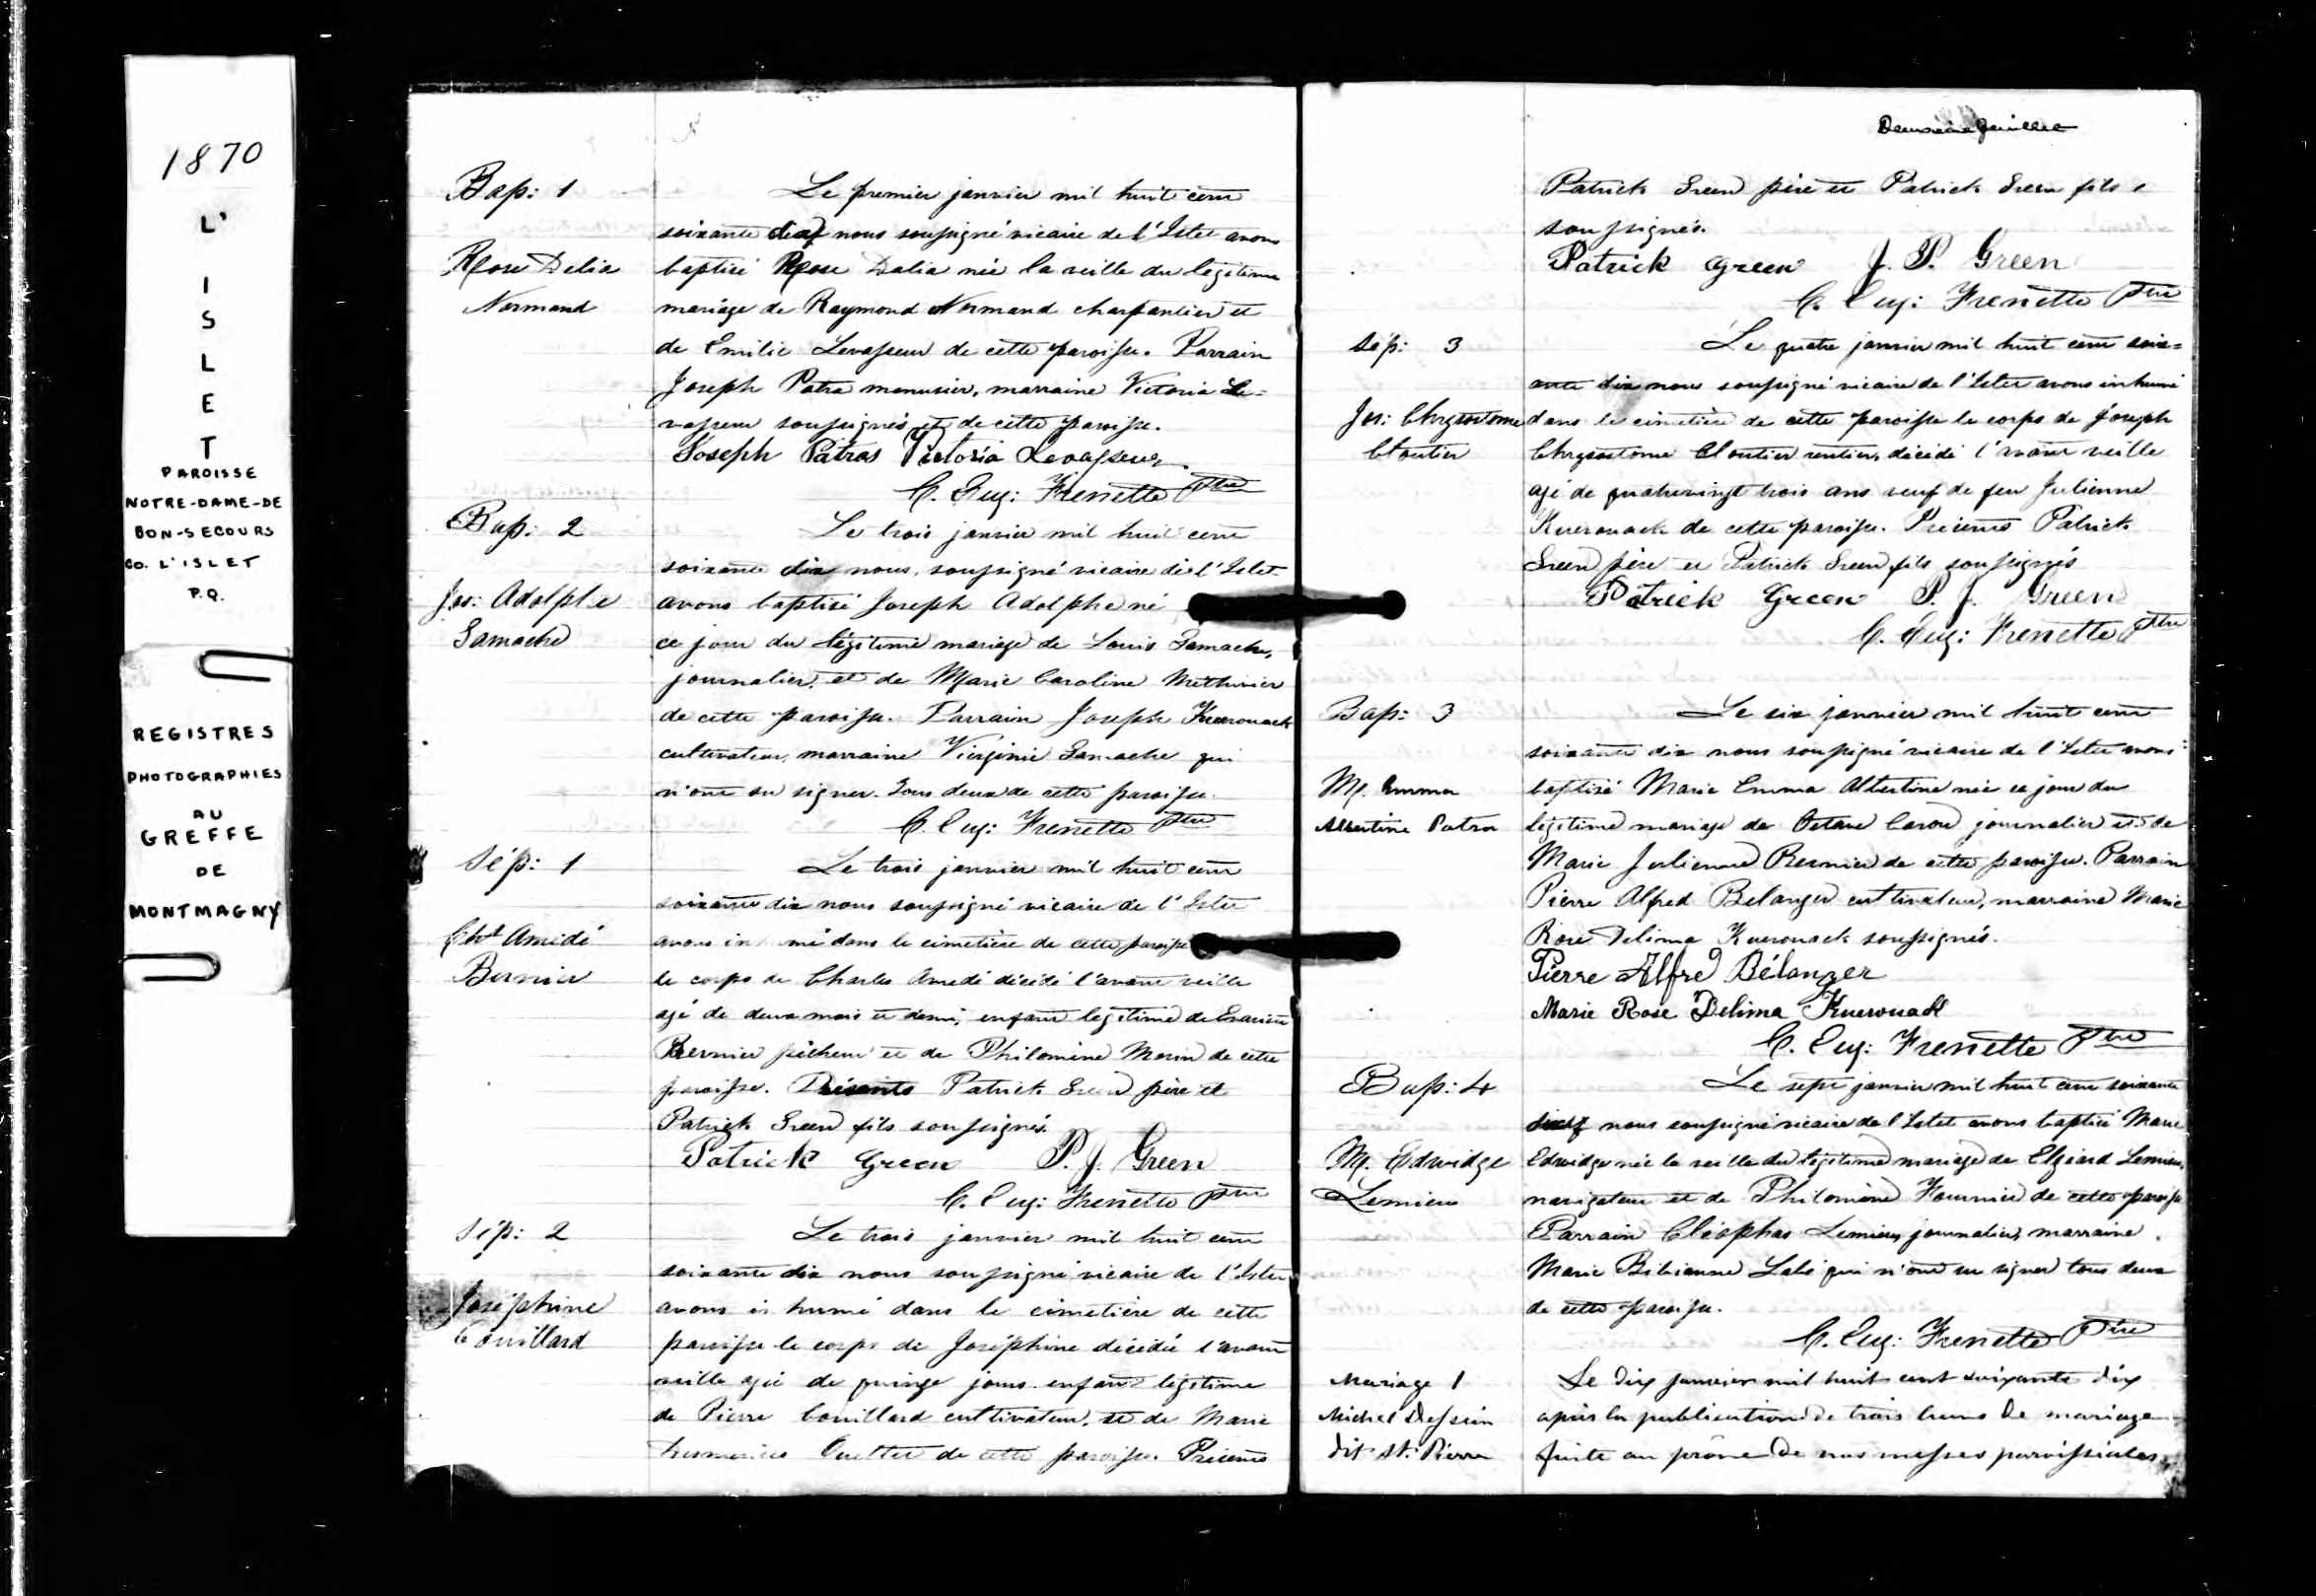 1870
L'
I
S
L
E
T
PAROISSE
NOTRE-DAME-DE
BON-SECOURS
CO. L'ISLET
P.Q.
REGISTRES
PHOTOGRAPHIES
AU
GREFFE
DE
MONTMAGNY
Bap: 1
Rose Delia
Normand
Le premier janvier mil huit cent
soixante dix nous soussigné vicaire de l'Islet avons
baptisé Rose Dalia née la veille du légitime
mariage de Raymond Normand charpentier et
de Emilie Levasseur de cette paroisse. Parrain
Joseph Patra menusier, marraine Victoria Le=
vasseur soussignés et de cette paroisse.
Joseph Patras Victoria Levasseur
C. Eug: Frenette Ptre
Bap: 2
Jos: Adolphe
Gamache
Le trois janvier mil huit cent
soixante dix nous, soussigné vicaire de l'Islet
avons baptisé Joseph Adolphe né
ce jour du légitime mariage de Louis Gamache,
journalier, et de Marie Caroline Methivier
de cette paroisse. Parrain Joseph Kuerouack
cultivateur, marraine Virginie Gamache qui
n'ont su signer. Tous deux de cette paroisse.
C. Eug: Frenette Ptre
Sép: 1
Chs Amédé
Bernier
Le trois janvier mil huit cent
soixante dix nous soussigné vicaire de l'Islet
avons inhumé dans le cimetière de cette paroisse
le corps de Charles Amédé décédé l'avant veille
agé de deux mois et demi, enfant légitime de
Bernier pêcheur et de Philomène Morin de cette
paroisse. Présents Patrick Green père et
Patrick Green fils soussignés.
Patrick Green P. J. Green
C. Eug: Frenette Ptre
Sép: 2
Joséphine
Couillard
Le trois janvier mil huit cent
soixante dix nous soussigné vicaire de l'Islet
avons inhumé dans le cimetière de cette
paroisse le corps de Joséphine décédée l'avant
veille agée de quinze jours enfant légitime
de Pierre Couillard cultivateur, et de Marie
Ouellet de cette paroisse. Présents
Deuxième feuillet
Patrick Green père et Patrick Green fils
soussignés.
Patrick Green J. P. Green
C. Eug: Frenette Ptre
Sép: 3
Jos: Chrysostome
Cloutier
Le quatre janvier mil huit cent soix=
ante dix nous soussigné vicaire de l'Islet avons inhumé
dans le cimetière de cette paroisse le corps de Joseph
Chrysostome Cloutier rentier, décédé l'avant veille
agé de quatrevingt trois ans veuf de feu Julienne
Kuerouack de cette paroisse. Présents Patrick
Green père et Patrick Green fils soussignés
Patrick Green P. J. Green
C. Eug: Frenette Ptre
Bap: 3
M. Emma
Albertine Patra
Le six janvier mil huit cent
soixante dix nous soussigné vicaire de l'Islet avons
baptisé Marie Emma Albertine née ce jour du
légitime mariage de Octave Caron journalier et de
Marie Julienne Bernier de cette paroisse. Parrain
Pierre Alfred Belanger cultivateur, marraine Marie
Rose Delima Kuerouack soussignés.
Pierre Alfred Bélanger
Marie Rose Delima Kuerouack
C. Eug: Frenette Ptre
Bap: 4
M. Edwidge
Lemieux
Le sept janvier mil huit cent soixante
dix nous soussigné vicaire de l'Islet avons baptisé Marie
Edwidge née la veille du légitime mariage de Elzéard Lemieux,
navigateur et de Philomène Fournier de cette paroisse
Parrain Cléophas Lemieux journalier, marraine
Marie Bibianne Labé qui n'ont su signer tous deux
de cette paroisse.
C. Eug: Frenette Ptre
Mariage 1
Michel Dessein
dit St. Pierre
Le dix janvier mil huit cent soixante dix
après la publication de trois bans de mariage
faite au prône de nos messes paroissiales